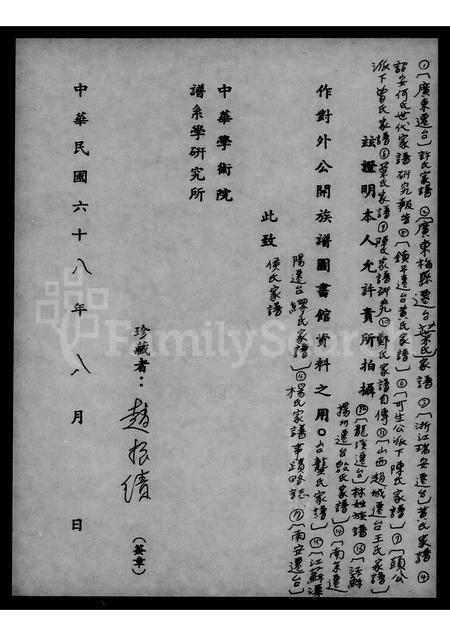 ①〔廣東遷台〕許氏家譜 ②〔廣東梅縣遷台〕葉氏家譜 ③〔浙江瑞安遷台〕黃氏家譜 ④
詔安何氏世代家譜研究報告 ⑤〔鎮平遷台黃氏家譜〕 ⑥〔可生公派下陳氏家譜〕 ⑦〔頭公
派下曾氏家譜 ⑧ 葉氏家譜 ⑨ 陳氏家譜研究 ⑩ 鄭氏家譜自傳 ⑪〔山西趙城遷台王氏家譜〕
茲證明本人允許貴所拍攝
⑫〔龍溪遷台〕林姓族譜 ⑬〔江蘇
揚州遷台 殷氏家譜〕 ⑭〔南京遷
作對外公開族譜圖書館資料之用。
台龔氏家譜〕 ⑮〔江蘇溧
陽遷台繆氏家譜〕 ⑯ 楊氏家譜事蹟略誌 ⑰〔南安遷台〕
侯氏家譜
此致
中華學術院
譜系學研究所
珍藏者：趙振績（簽章）
中華民國六十八年 八 月 日
FamilySearch